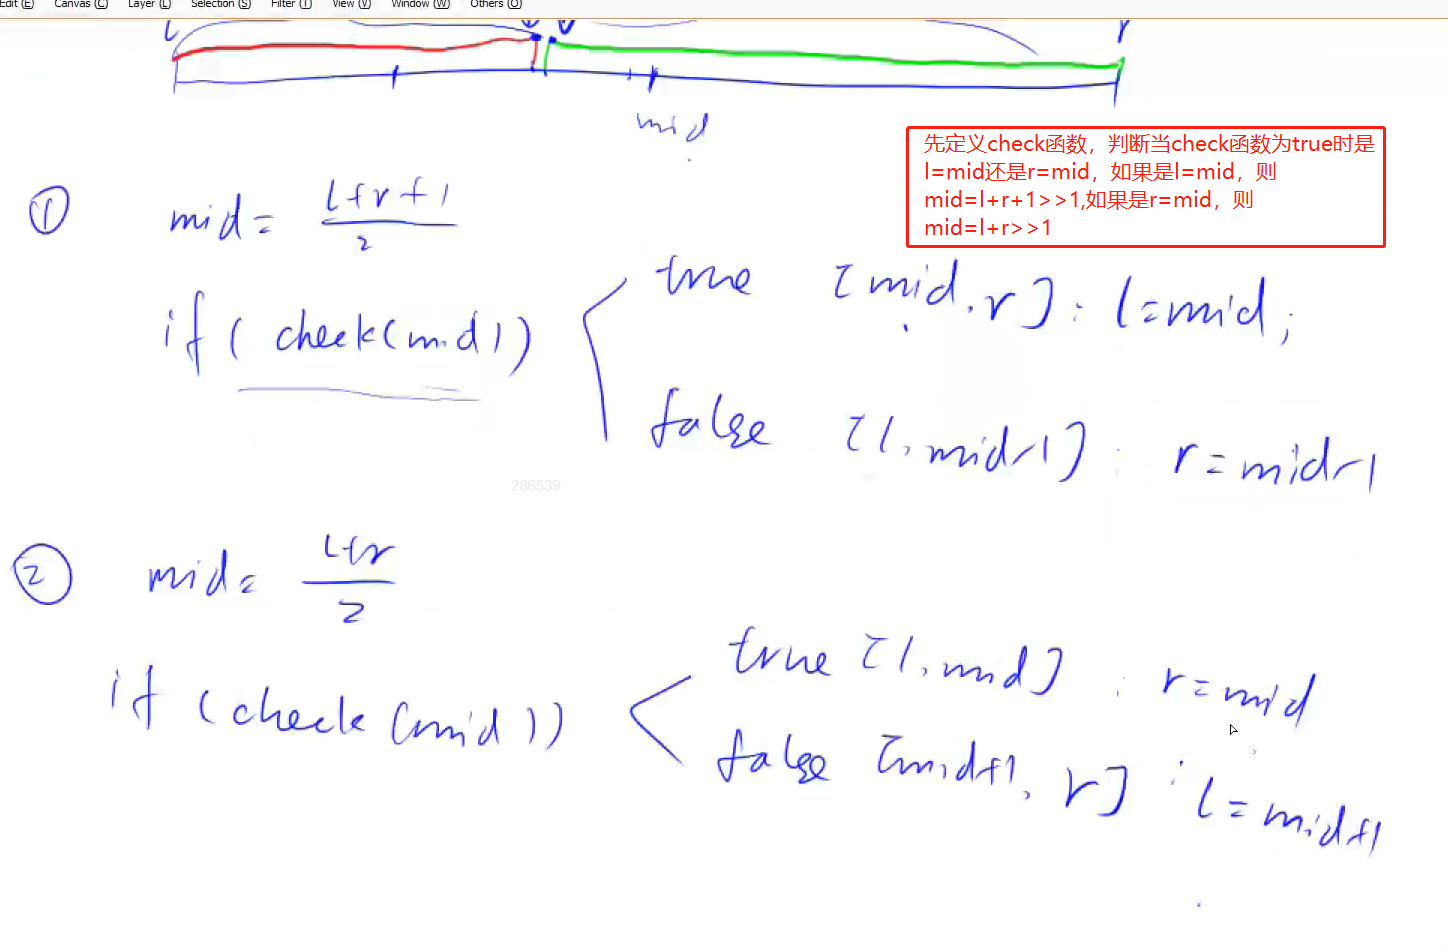 Edit (E) Canvas (C) Layer (L) Selection (S) Filter (T) View (V) Window (W) Others (O)
l r
mid
先定义check函数，判断当check函数为true时是
l=mid还是r=mid，如果是l=mid，则
mid=l+r+1>>1,如果是r=mid，则
mid=l+r>>1
① mid= l+r+1
2
true [mid,r]: l=mid;
if(check(mid))
false [l,mid-1] r=mid-1
286539
② mid= l+r
2
true [l,mid] r=mid
if(check(mid))
false [mid+1,r] l=mid+1